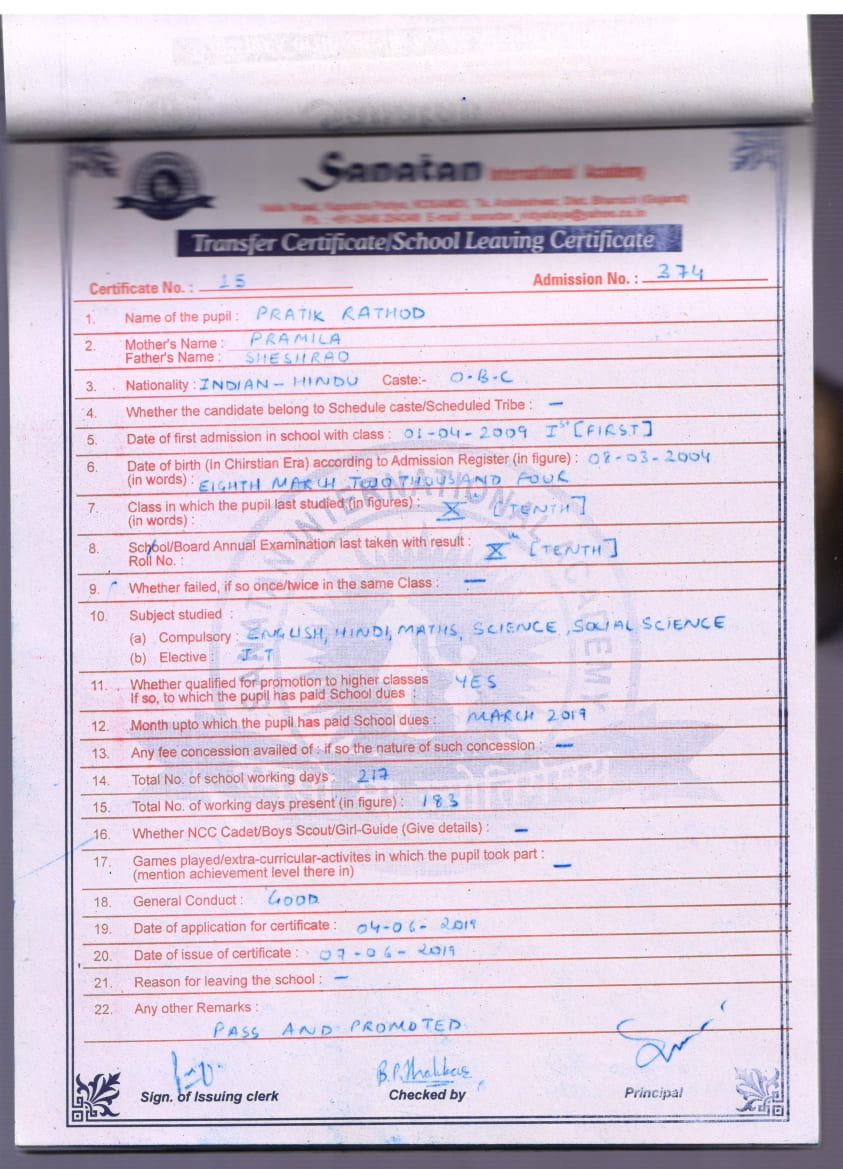 Sanatan International Academy
Transfer Certificate/School Leaving Certificate
Certificate No. : 15 Admission No. : 374
1. Name of the pupil : PRATIK RATHOD
2. Mother's Name : PRAMILA
Father's Name : SHESHRAO
3. Nationality : INDIAN - HINDU Caste:- O-B-C
4. Whether the candidate belong to Schedule caste/Scheduled Tribe : —
5. Date of first admission in school with class : 01-04-2009 Ist [FIRST]
6. Date of birth (In Chirstian Era) according to Admission Register (in figure) : 08-03-2004
(in words) : EIGHTH MARCH TWO THOUSAND FOUR
7. Class in which the pupil last studied (in figures) : Xth [TENTH]
(in words) :
8. School/Board Annual Examination last taken with result : Xth [TENTH]
Roll No. :
9. Whether failed, if so once/twice in the same Class : —
10. Subject studied :
(a) Compulsory : ENGLISH, HINDI, MATHS, SCIENCE, SOCIAL SCIENCE
(b) Elective : I T
11. Whether qualified for promotion to higher classes YES
If so, to which the pupil has paid School dues :
12. Month upto which the pupil has paid School dues : MARCH 2019
13. Any fee concession availed of : if so the nature of such concession : —
14. Total No. of school working days : 217
15. Total No. of working days present (in figure) : 183
16. Whether NCC Cadet/Boys Scout/Girl-Guide (Give details) : —
17. Games played/extra-curricular-activites in which the pupil took part : —
(mention achievement level there in)
18. General Conduct : GOOD
19. Date of application for certificate : 04-06-2019
20. Date of issue of certificate : 07-06-2019
21. Reason for leaving the school : —
22. Any other Remarks :
PASS AND PROMOTED
Sign. of Issuing clerk Checked by Principal